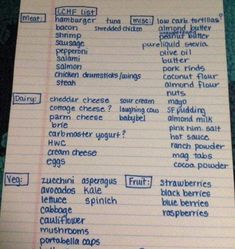 LCHF list
Meat: hamburger tuna misc: low carb tortillas?
bacon shredded chicken almond butter
shrimp peanut butter
sausage pure liquid stevia
pepperoni olive oil
salami butter
salmon pork rinds
chicken drumsticks/wings coconut flour
steak almond flour
Dairy: cheddar cheese sour cream mayo
cottage cheese? laughing cow SF pudding
parm cheese babybel almond milk
brie pink him. salt
carbmaster yogurt? hot sauce
HWC ranch powder
cream cheese mag tabs
eggs cocoa powder
Veg: zucchini asparagus Fruit: strawberries
avocados kale black berries
lettuce spinich blue berries
cabbage raspberries
cauliflower
mushrooms
portabella caps